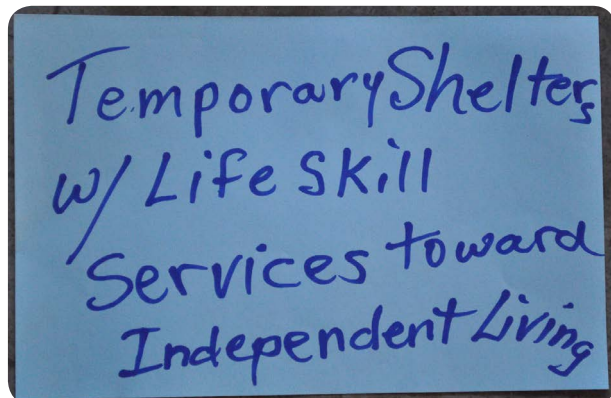 Temporary Shelters
w/ Life Skill
Services toward
Independent Living